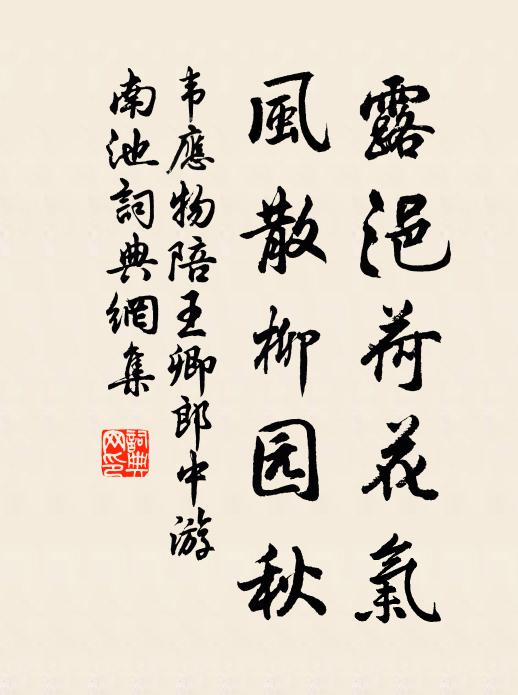 露浥荷花氣
風散柳园秋
韦應物陪王卿郎中游
南池詞典網集
詞典
网印